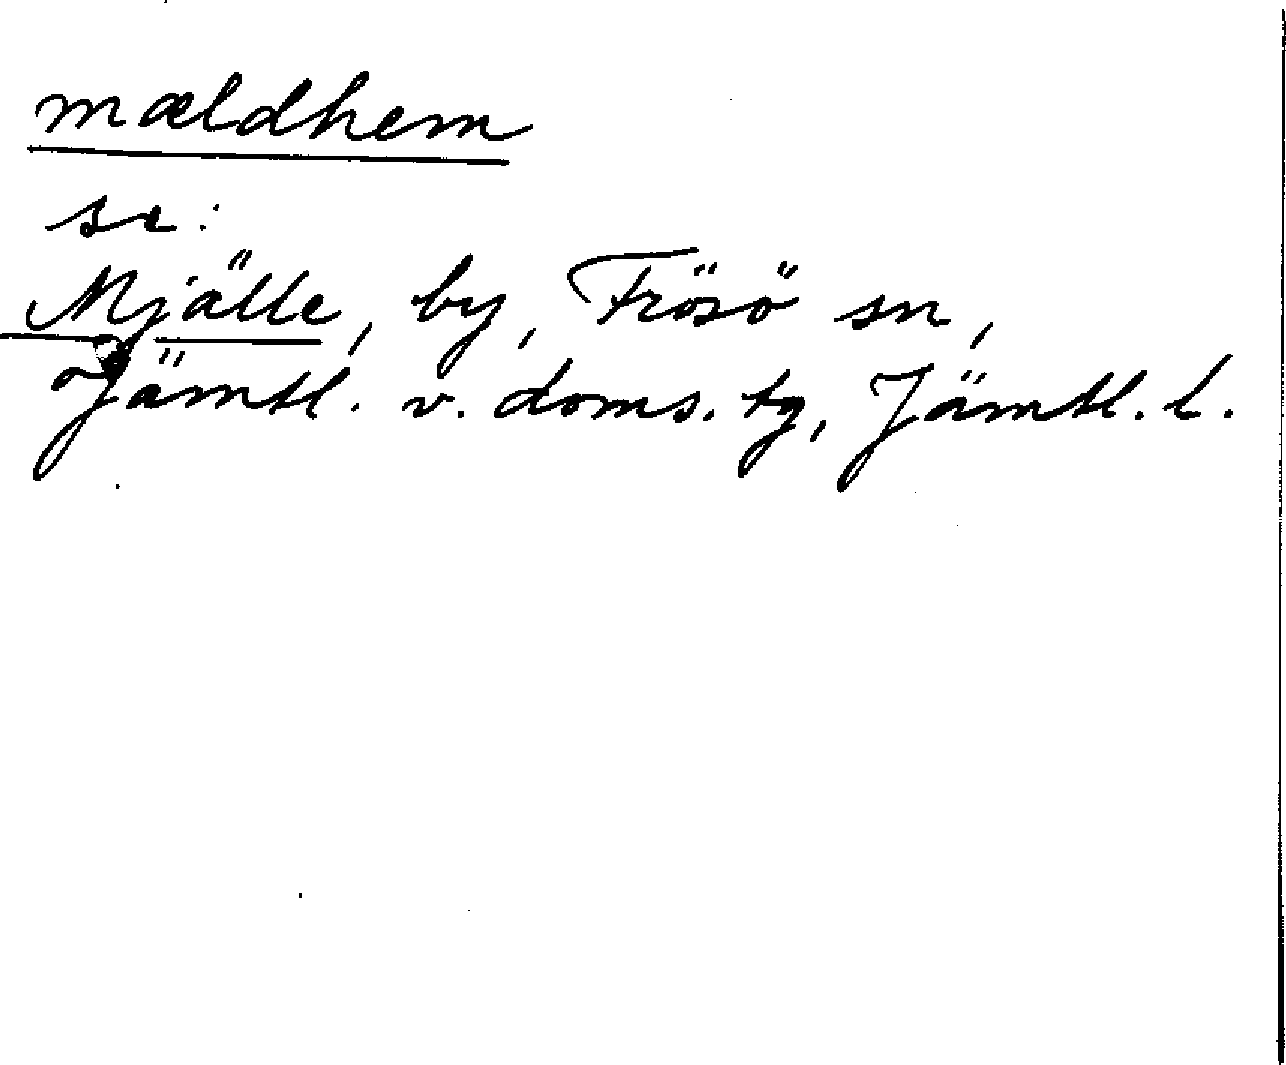 mældhem
se:
Mjälle, by, Frösö sn,
Jämtl. v. doms. tg, Jämtl. l.